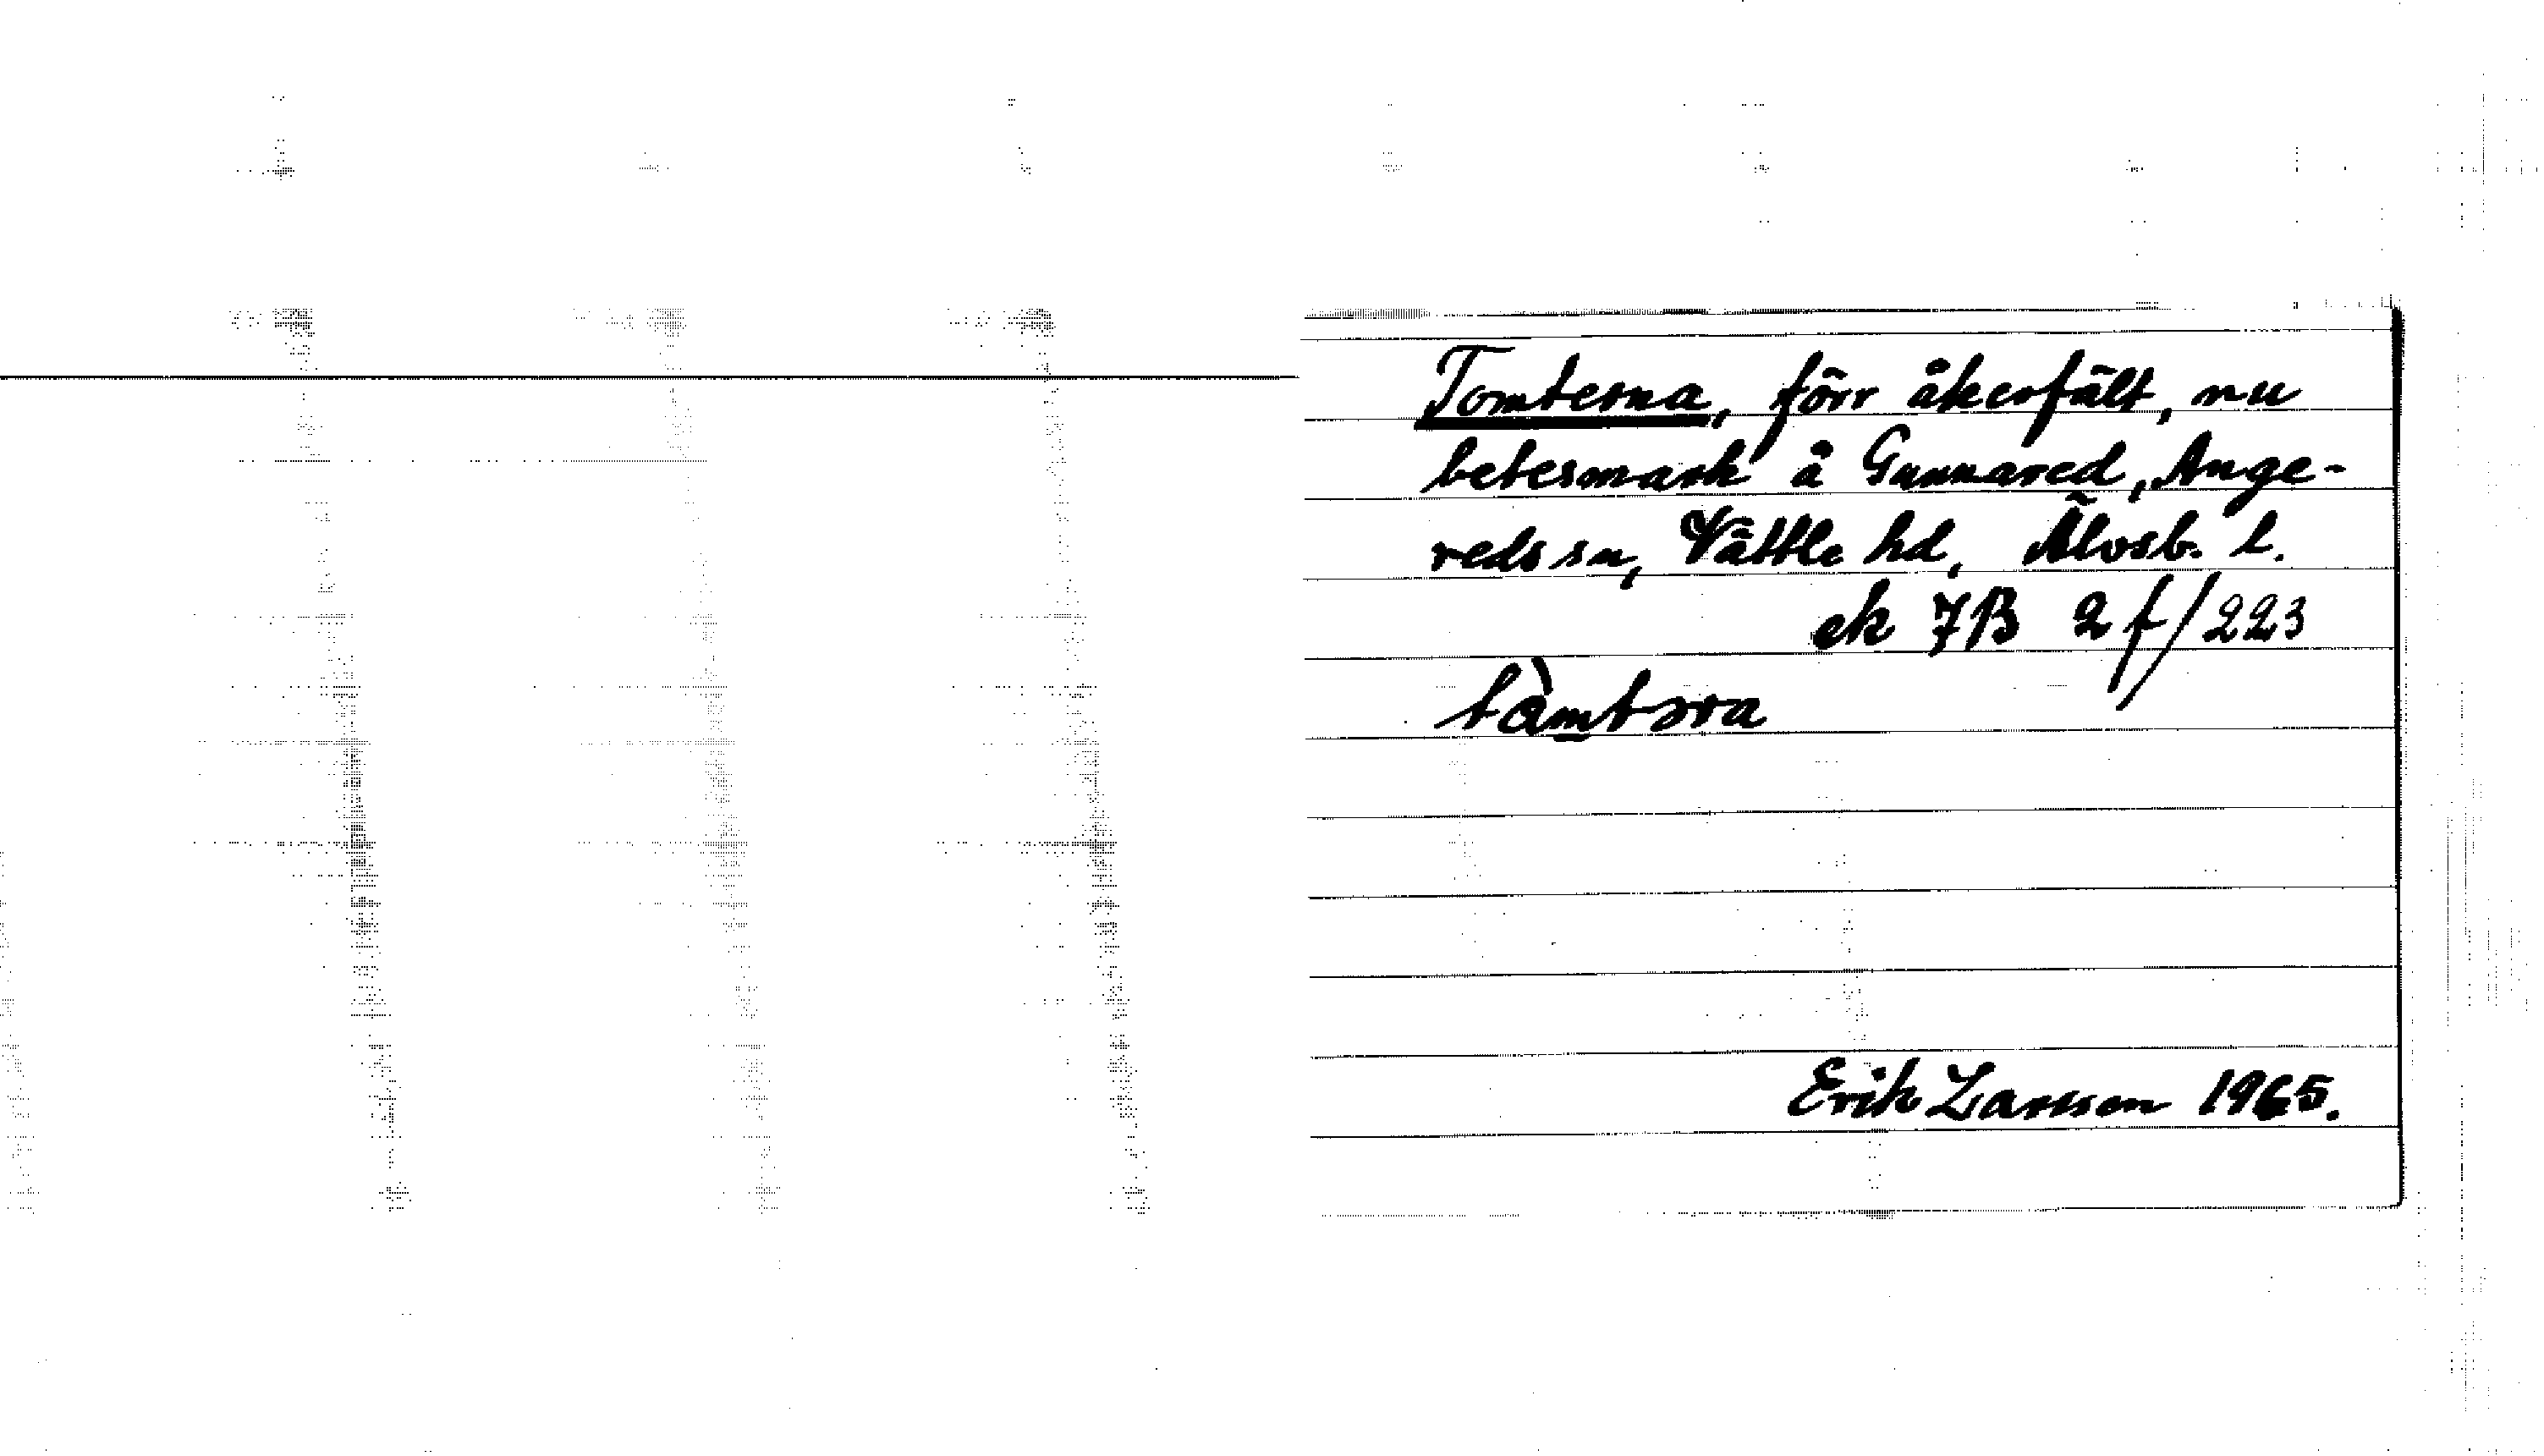 Tomterna, förr åkerfält, nu
betesmark å Gunnared, Ange-
reds sn, Vättle hd, Älvsb. l.
ek 7B 2f/223
Erik Larsson 1965.